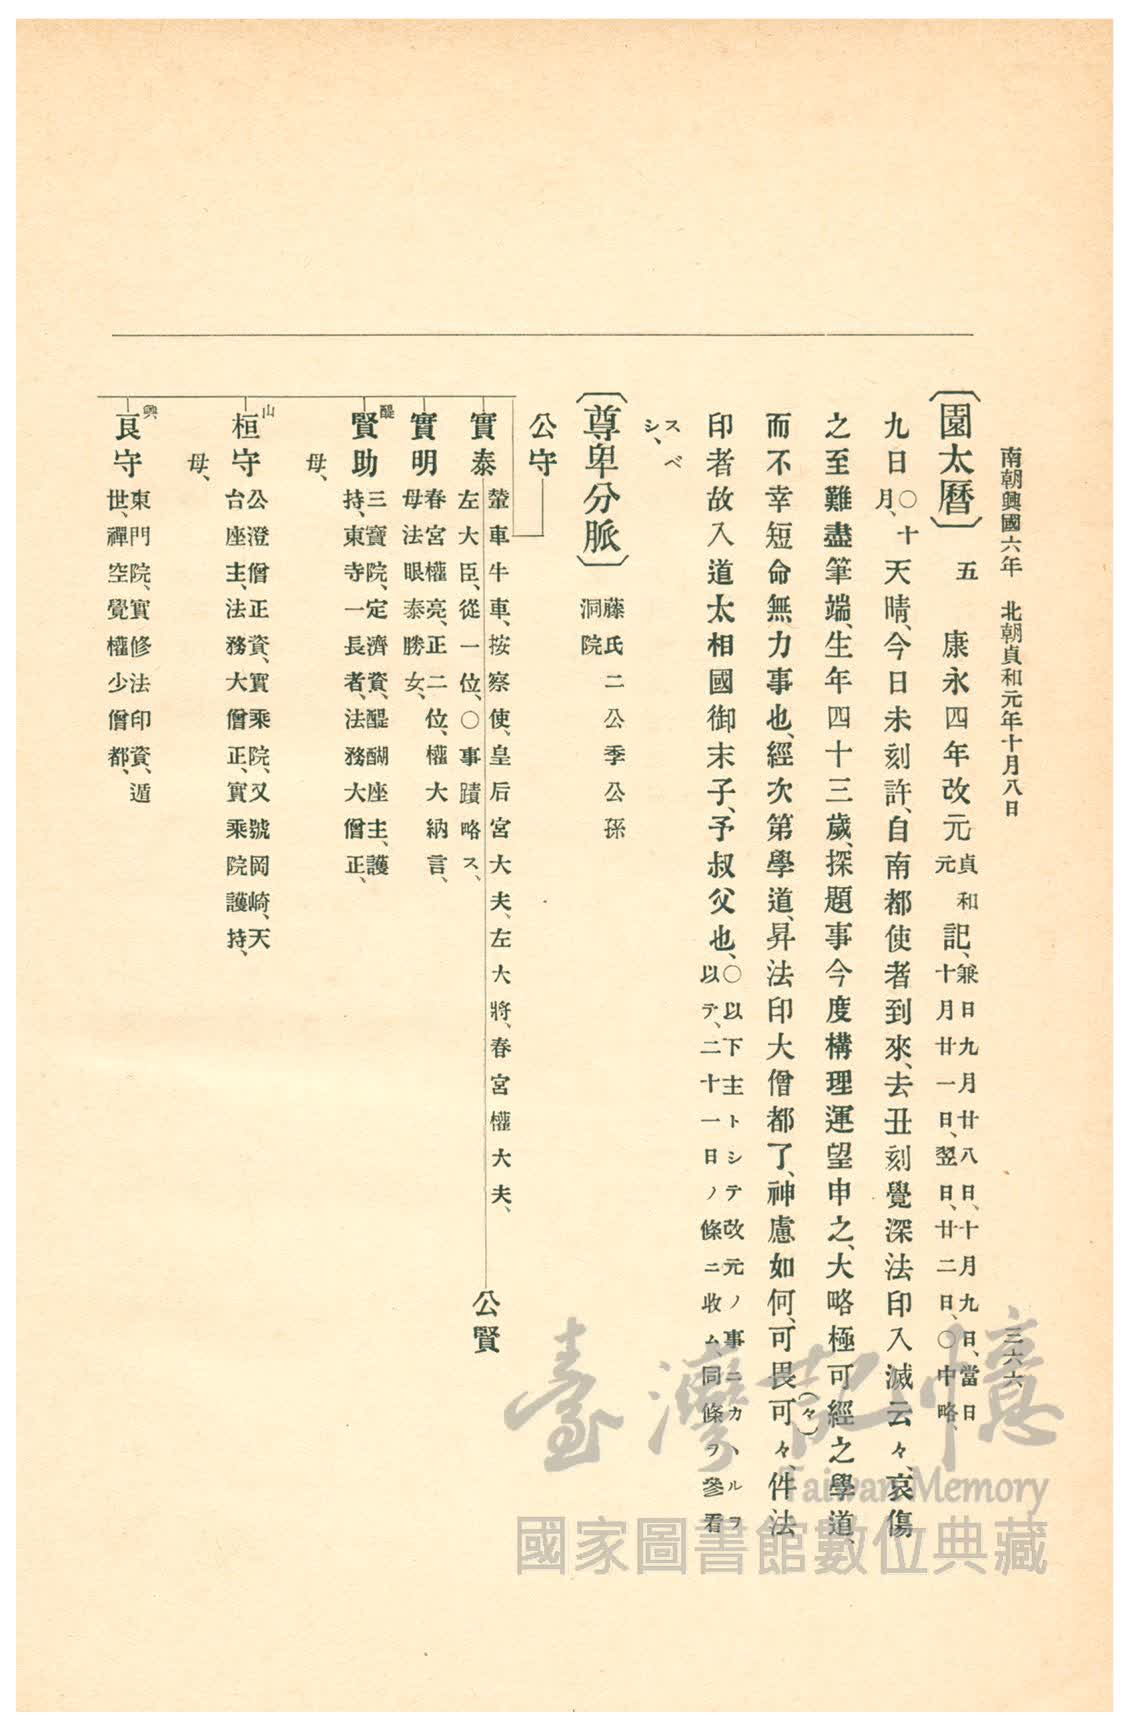 南朝興國六年　北朝貞和元年十月八日　三六六
〔園太曆〕　五　康永四年改元貞和元記、兼日九月廿八日、十月九日、當日十月廿一日、翌日、廿二日、〇中略、
九日〇十月、天晴、今日未刻許、自南都使者到來、去丑刻覺深法印入滅云々、哀傷
之至難盡筆端、生年四十三歲、探題事今度構理運望申之、大略極可經之學道、
而不幸短命無力事也、經次第學道、昇法印大僧都了、神慮如何、可畏可(々)々、件法
印者故入道太相國御末子、予叔父也、〇以下主トシテ改元ノ事ニカヽルヲ以テ、二十一日ノ條ニ收ム、同條ヲ參看
スベシ、
〔尊卑分脈〕藤氏二公季公孫洞院
公守
實泰　輦車牛車、按察使、皇后宮大夫、左大將、春宮權大夫、左大臣、從一位、〇事蹟略ス、
公賢
實明　春宮權亮、正二位、權大納言、母法眼泰勝女、
醍賢助　三寶院、定濟資、醍醐座主、護持、東寺一長者、法務大僧正、
母、
山桓守　公澄僧正資、實乘院、又號岡崎、天台座主、法務大僧正、實乘院護持、
母、
興良守　東門院、實修法印資、遁世、禪空覺權少僧都、
臺灣記憶
Taiwan Memory
國家圖書館數位典藏